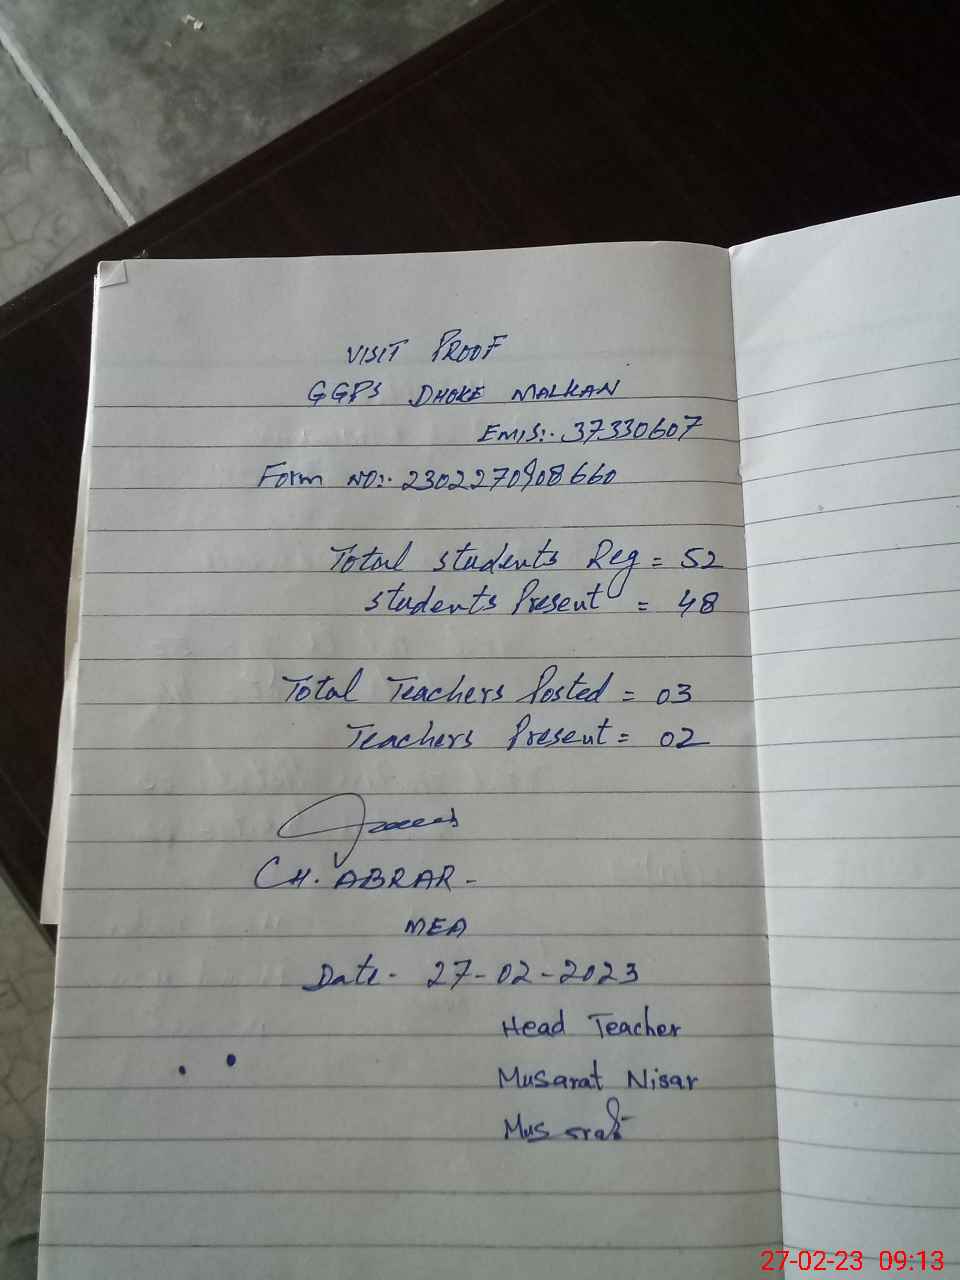 VISIT PROOF
GGPS DHOKE MALKAN
EMIS:. 37330607
Form NO:. 2302270908660
Total students Reg = 52
students Present = 48
Total Teachers Posted = 03
Teachers Present = 02
CH. ABRAR -
MEA
Date - 27-02-2023
Head Teacher
Musarat Nisar
27-02-23 09:13